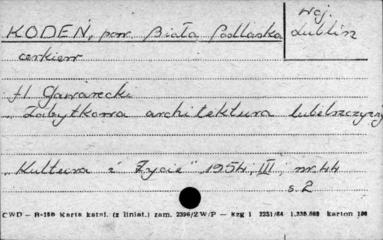 KODEŃ, pow. Biała Podlaska
woj. Lublin
cerkiew
H. Gawarecki
"Zabytkowa architektura lubelszczyzny
"Kultura i Życie" 1954, III, nr. 44
s. 2
CWD – B-150 Karta katal. (z liniat.) zam. 2396/Z W/P – kzg 1 2231/64 1.230.000 karton 180